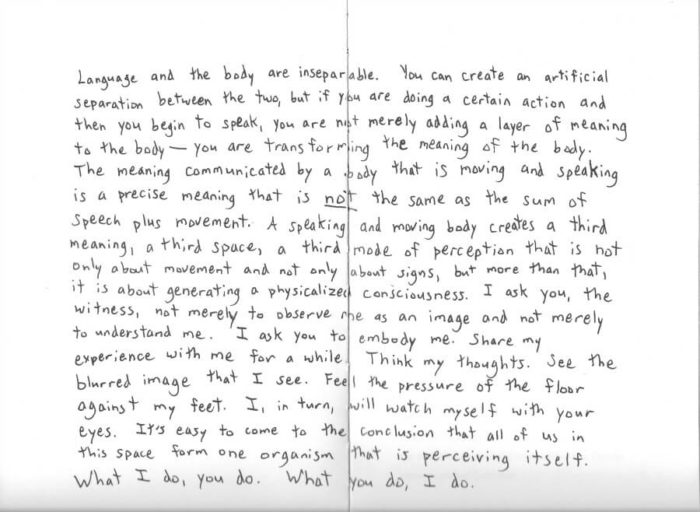 Language and the body are inseparable. You can create an artificial
separation between the two, but if you are doing a certain action and
then you begin to speak, you are not merely adding a layer of meaning
to the body — you are transforming the meaning of the body.
The meaning communicated by a body that is moving and speaking
is a precise meaning that is not the same as the sum of
speech plus movement. A speaking and moving body creates a third
meaning, a third space, a third mode of perception that is not
only about movement and not only about signs, but more than that,
it is about generating a physicalized consciousness. I ask you, the
witness, not merely to observe me as an image and not merely
to understand me. I ask you to embody me. Share my
experience with me for a while. Think my thoughts. See the
blurred image that I see. Feel the pressure of the floor
against my feet. I, in turn, will watch myself with your
eyes. It's easy to come to the conclusion that all of us in
this space form one organism that is perceiving itself.
What I do, you do. What you do, I do.